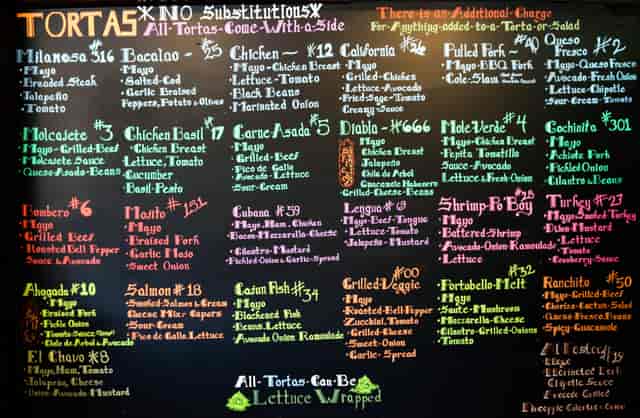 TORTAS *NO Substitutions*
All-Tortas-Come-With-a-Side
There is an Additional Charge
For-Anything-added-to-a-Torta or Salad
Milanesa 316
Mayo
Breaded Steak
Jalapeño
Tomato
Bacalao - #25
Mayo
Salted-Cod
Garlic Braised
Peppers, Potato & Olives
Chicken - #12
Mayo-Chicken Breast
Lettuce-Tomato
Black Beans
Marinated Onion
California
Mayo
Grilled-Chicken
Lettuce-Avocado
Fried-Sage-Tomato
Creamy Sauce
Pulled Pork - #40
Mayo-BBQ Pork
Cole-Slaw
Queso Fresco #2
Mayo-Queso Fresco
Avocado-Fresh Onion
Lettuce-Chipotle
Sour-Cream-Tomato
Molcajete #3
Mayo-Grilled-Beef
Molcajete Sauce
Queso-Asado-Beans
Chicken Basil #17
Chicken Breast
Lettuce, Tomato
Cucumber
Basil-Pesto
Carne-Asada #5
Mayo
Grilled-Beef
Pico de Gallo
Avocado Lettuce
Sour-Cream
Diabla - #666
Mayo
Chicken Breast
Jalapeño
Chile de Arbol
Guacamole Habanero
Grilled-Cheese-Beans
Mole-Verde #4
Mayo-Chicken Breast
Pepita Tomatillo
Sauce-Avocado
Lettuce & Fresh-Onion
Cochinita #301
Mayo
Achiote Pork
Pickled Onion
Cilantro & Beans
Bombero #6
Mayo
Grilled Beef
Roasted Bell Pepper
Sauce & Avocado
Mojito #151
Mayo
Braised Pork
Garlic Mojo
Sweet Onion
Cubana #59
Mayo, Ham, Chicken
Bacon-Mozzarella-Cheese
Cilantro-Mustard
Pickled-Onion & Garlic-Spread
Lengua #
Mayo-Beef-Tongue
Lettuce-Tomato
Jalapeño-Mustard
Shrimp-Po'Boy #28
Mayo
Battered-Shrimp
Avocado-Onion Ramoulade
Lettuce
Turkey #27
Mayo Smoked Turkey
Dijon-Mustard
Lettuce
Tomato
Cranberry-Sauce
Ahogada #10
Mayo
Braised Pork
Pickle Onion
Tomato-Sauce
Chile de Arbol & Avocado
Salmon #18
Smoked-Salmon & Cream
Cheese Mix-Capers
Sour-Cream
Pico de Gallo, Lettuce
Cajun Fish #34
Mayo
Blackened Fish
Beans, Lettuce
Avocado Onion Ramoulade
Grilled-Veggie #00
Mayo
Roasted-Bell-Pepper
Zucchini, Tomato
Grilled-Cheese
Sweet-Onion
Garlic-Spread
Portabello-Melt #32
Mayo
Saute-Mushroom
Mozzarella-Cheese
Cilantro-Grilled-Onions
Tomato
Ranchito #50
Mayo-Grilled-Beef
Chorizo-Cactus-Salad
Queso-Fresco, Beans
Spicy-Guacamole
El Chavo #8
Mayo, Ham, Tomato
Jalapeño, Cheese
Onion-Avocado-Mustard
All-Tortas-Can-Be
Lettuce Wrapped
#19
Chipotle Sauce
Avocado
Pineapple